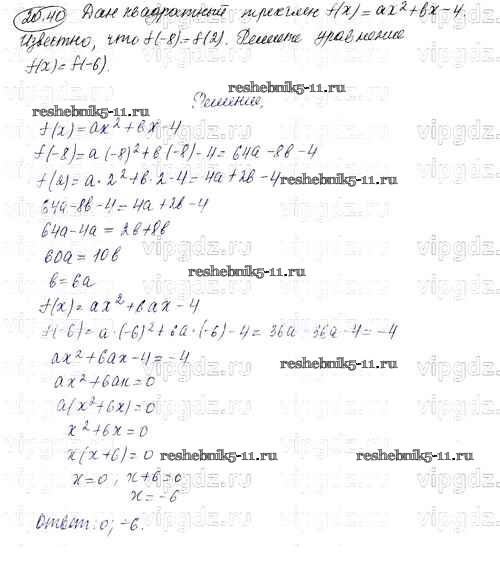 20.40 Дан квадратный трехчлен f(x) = ax² + bx - 4.
Известно, что f(-8) = f(2). Решите уравнение
f(x) = f(-6).
Решение.
f(x) = ax² + bx - 4
f(-8) = a·(-8)² + b·(-8) - 4 = 64a - 8b - 4
f(2) = a·2² + b·2 - 4 = 4a + 2b - 4
64a - 8b - 4 = 4a + 2b - 4
64a - 4a = 2b + 8b
60a = 10b
b = 6a
f(x) = ax² + 6ax - 4
f(-6) = a·(-6)² + 6a·(-6) - 4 = 36a - 36a - 4 = -4
ax² + 6ax - 4 = -4
ax² + 6ax = 0
a(x² + 6x) = 0
x² + 6x = 0
x(x + 6) = 0
x = 0, x + 6 = 0
x = -6
Ответ: 0; -6.
reshebnik5-11.ru
reshebnik5-11.ru
reshebnik5-11.ru
reshebnik5-11.ru
reshebnik5-11.ru
reshebnik5-11.ru
reshebnik5-11.ru
vipgdz.ru